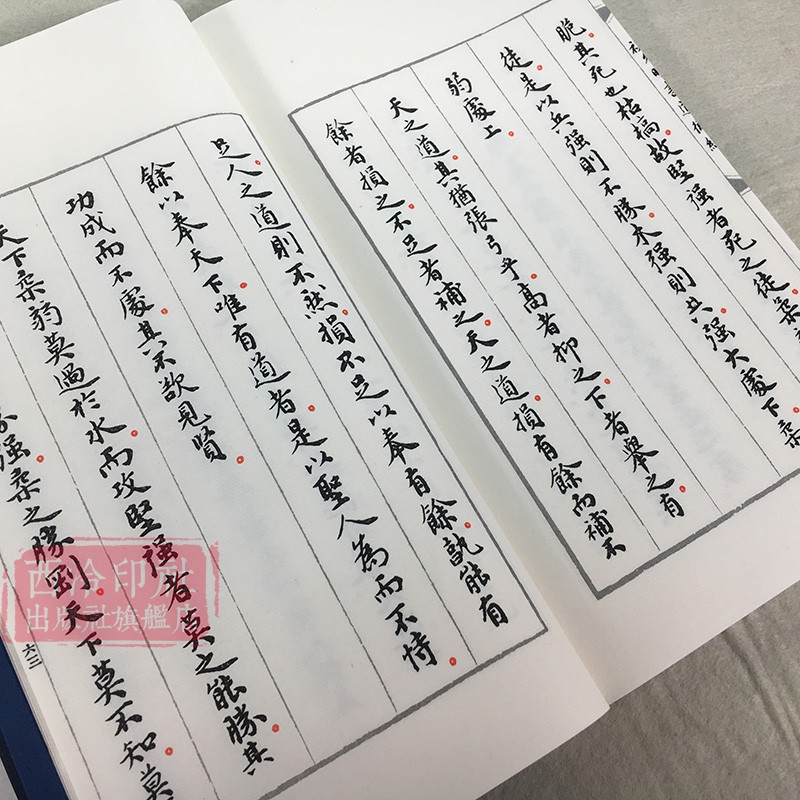 脆。其死也枯槁。故堅强者死之徒。柔
徒。是以兵强則不勝。木强則共。强大處下。柔
弱處上。
天之道。其猶張弓乎。高者抑之。下者舉之。有
餘者損之。不足者補之。天之道。損有餘而補不
足。人之道則不然。損不足以奉有餘。孰能有
餘以奉天下。唯有道者。是以聖人為而不恃。
功成而不處。其不欲見賢。
天下柔弱莫過於水。而攻堅强者莫之能勝。其
强。柔之勝剛。天下莫不知。莫
六三
西泠印社
出版社旗艦店